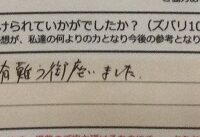 けられていかがでしたか？（ズバリ10
想が、私達の何よりの力となり今後の参考となり
有難う御座いました。